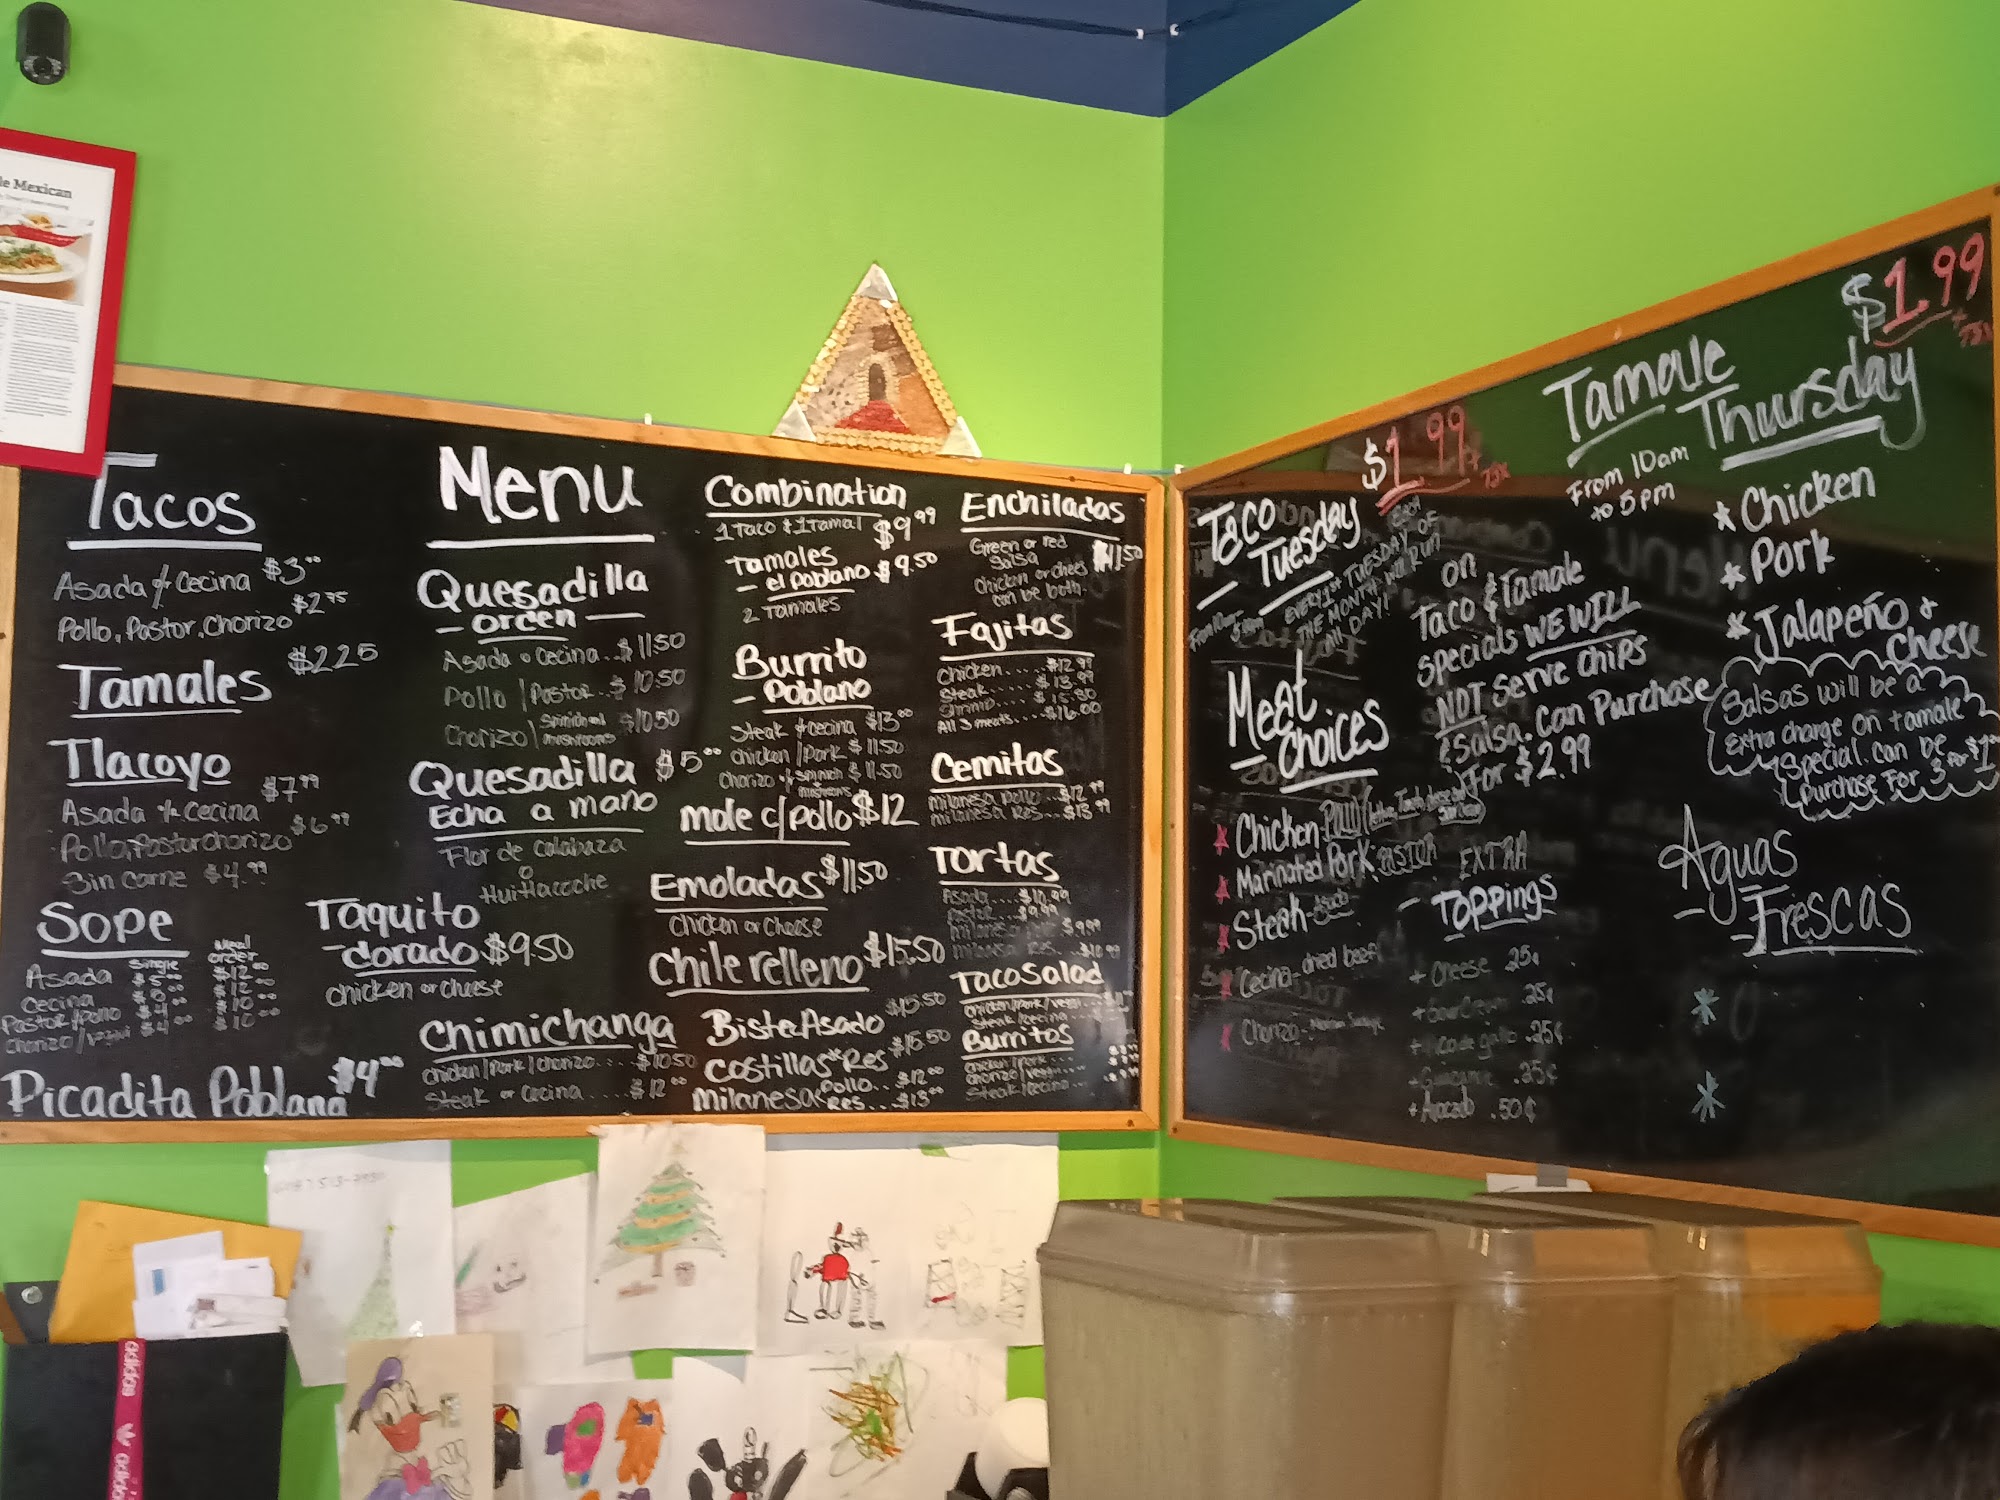 le Mexican
Tacos
Asada y/o Cecina $3.00
Pollo, Pastor, Chorizo $2.75
Tamales $2.25
Tlacoyo
Asada y/o Cecina $7.99
Pollo, Pastor Chorizo $6.99
Sin Carne $4.99
Sope
single
Meal order
Asada $5.00 $12.00
Cecina $12.00
Pastor/Pollo $4.00 $10.00
Chorizo/ $4.00 $10.00
Picadita Poblana $4.00
Menu
Quesadilla
- orden -
Asada o Cecina.. $11.50
Pollo / Pastor.. $10.50
Chorizo / Spinich and mushrooms $10.50
Quesadilla $5.00
Echa a mano
Flor de calabaza
o
Huitlacoche
Taquito
- dorado $9.50
chicken or cheese
Chimichanga
chicken/Pork/chorizo.... $10.50
Steak or Cecina .... $12.00
Combination
1 Taco & 1 Tamal $9.99
Tamales
- el Poblano $9.50
2 Tamales
Burrito
- Poblano
Steak y cecina $13.00
chicken / Pork $11.50
Chorizo y spinich $11.50
mushrooms
Mole c/pollo $12
Emoladas $11.50
Chicken or Cheese
Chile relleno $15.50
Bistec Asado $15.50
Costillas Res $15.50
Milanesa Pollo.. $12.00
Res... $13.00
Enchiladas
Green or red
Salsa $11.50
Chicken or chees
can be both.
Fajitas
Chicken.... $12.99
Steak..... $13.99
Shrimp.... $15.50
All 3 meats.... $16.00
Cemitas
milanesa pollo... $12.99
milanesa Res... $13.99
Tortas
Asada.... $10.99
Pastor... $9.99
milanesa $9.99
milanesa Res... $10.99
Taco Salad
chicken/pork/veggi...
Steak/cecina...
Burritos
chicken/pork...
chorizo/veggi...
Steak/cecina...
$1.99 + Tax
Taco
- Tuesday
From 10am
5pm
EVERY 1st TUESDAY OF
EACH
THE MONTH WE RUN
all DAY!
Meat
choices
Chicken Pollo
Marinated Pork, PASTOR
Steak-
Cecina-dried beef
Chorizo-
on
Taco & Tamale
specials WE WILL
NOT serve chips
& salsa. Can Purchase
For $2.99
EXTRA
- Toppings
+ Cheese .25¢
+ Sour Cream .25¢
+ Pico de gallo .25¢
+ .25¢
+ Avocado .50¢
$1.99 + Tax
Tamale
Thursday
From 10am
to 5pm
Chicken
Pork
Jalapeño &
Cheese
Salsas will be a
Extra charge on tamale
special. can be
purchase For 3 For $1.00
Aguas
- Frescas
adidas
adidas